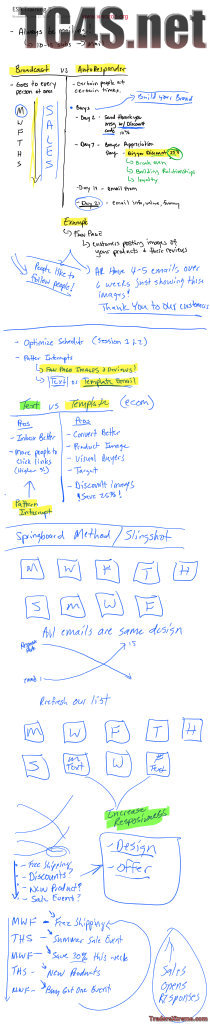 TC4S.net
- Always be mailing
Broadcast vs AutoResponder
- Goes to every
person at once
- Certain people at
certain times.
Build your Brand
M
W
F
T
H
S
SALES
Days
- Day 2 - Send thank you
email w/ Discount
code 10%
- Day 7 - Buyer Appreciation
Bigger Discount 25%
↳ Break even
↳ Building Relationships
↳ loyalty
- Day 14 - email from
- Day 21 - email info, value, funny
Example
↳ Fan Page
↳ customers posting images of
your products & their reviews
People like to
follow people!
AR have 4-5 emails over
6 weeks just showing these
images!
Thank you to our customers
- Optimize Schedule (Session 2+2)
- Patter Interrupts
↳ Fan Page Images & Reviews!
↳ Text vs Template email
Text vs Template (ecom)
Pros
- Inbox Better
- More people to
click links
Pattern
Interrupt
Pros
- Convert Better
- Product Image
- Visual Buyers
- Target
- Discount images
!Save 25%!
Springboard Method / Slingshot
M W F T H
S M W F
All emails are same design
Refresh our list
M W F T H
S M Text W F Text
Increase
Responsiveness
- Design
- Offer
- Free Shipping
- Discounts
- New Product?
- Sale Event?
MWF - Free Shipping
THS - Summer Sale Event
MWF - Save 30% this week
THS - New Products
MWF - Buy Get One Event
Sales
Opens
Responses
TradersXtreme.com